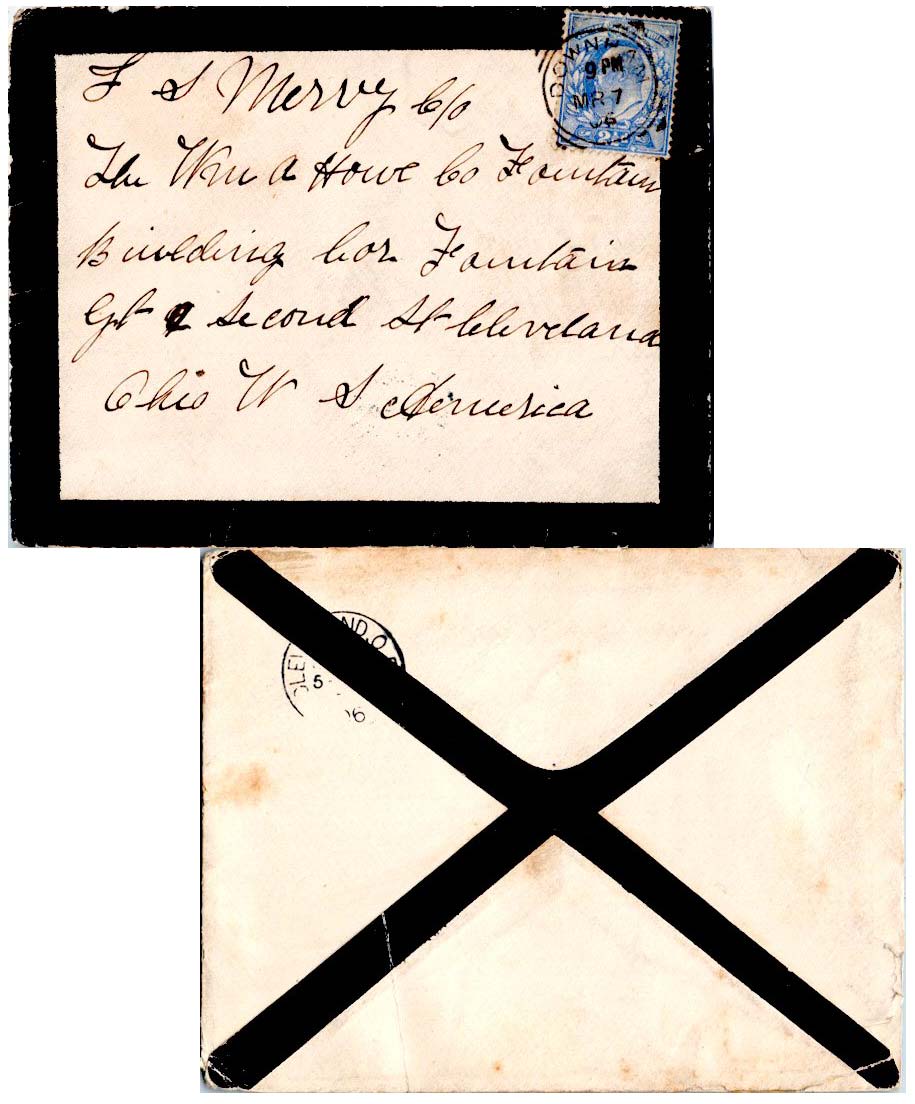 F S Mervy C/o
The Wm A Howe Co Fountain
Building Cor Fountain
& Second St Cleveland
Ohio W S America
DOWNHAM
9 PM
MR 7
06
CLE ND, O
5
06